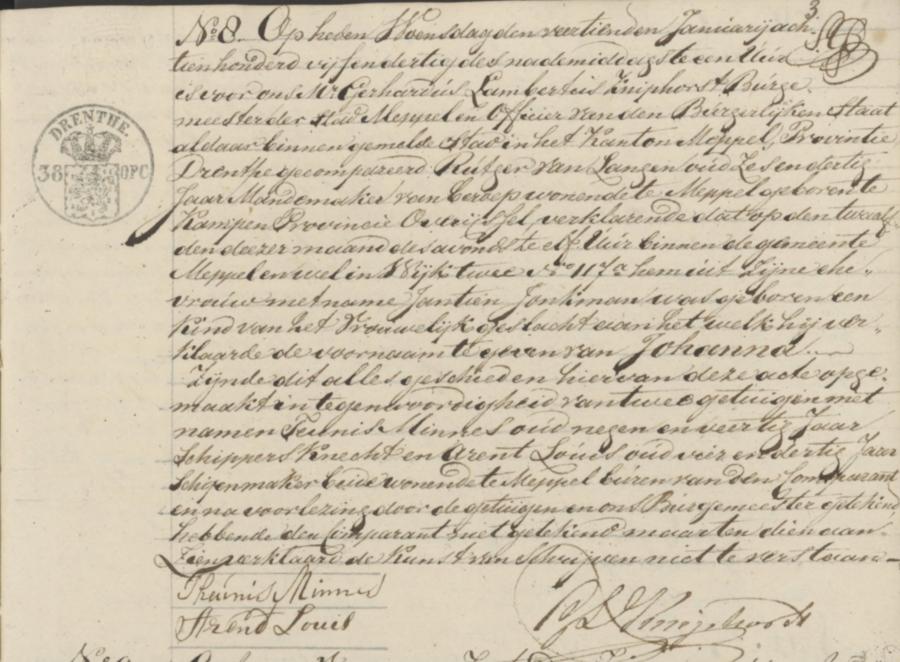 3
No 8. Op heden Woensdag den veertienden Januarij ach,
tienhonderd vijf en dertig des nademiddags te een Uur
is voor ons Mr Gerhardus Lambertus Kniphorst Burge
meester der stad Meppel en Officier van den Burgerlijken Staat
aldaar binnen gemelde Stad in het Kanton Meppel, Provintie
Drenthe gecompareerd Rutger van Langen oud Zes en dertig
Jaar Mandemaker van beroep wonende te Meppel geboren te
Kampen Provincie Overijssel, verklarende dat op den twaalf
den deezer maand des avonds te elf Uur binnen de gemeente
Meppel en wel in Wijk twee No 117a hem uit Zijne ehe,,
vrouw met name Jantien Jonkman was geboren een
Kind van het Vrouwelijk geslacht aan het welk hij ver,,
klaarde de voornaam te geven van Johanna
Zijnde dit alles geschied en hiervan deze acte opge,
maakt in tegenwoordigheid van twee getuigen met
namen Teunis Minnes oud negen en veertig Jaar
Schippers Knecht en Arent Louis oud vier en dertig Jaar
Schoenmaker beide wonende te Meppel buren van den Comparant
en na voorlezing door de getuigen en ons Burgemeester getekend
hebbende den Comparant niet getekend maar ten dien aan-
Zien verklaard de Kunst van Schrijven niet te verstaan
Theunis Minnes
Arend Louis
DRENTHE.
38 OPC